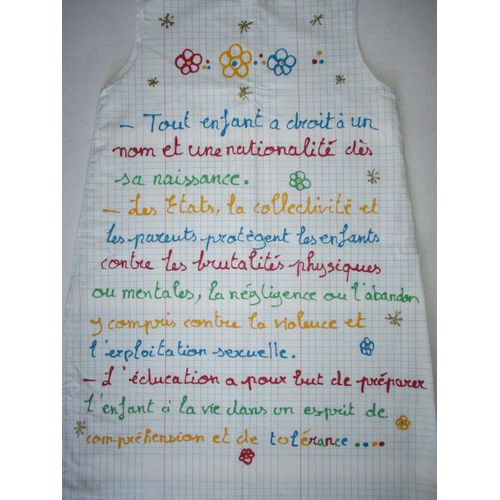 - Tout enfant a droit à un
nom et une nationalité dès
sa naissance.
- Les Etats, la collectivité et
les parents protègent les enfants
contre les brutalités physiques
ou mentales, la négligence ou l'abandon
y compris contre la violence et
l'exploitation sexuelle.
- L'éducation a pour but de préparer
l'enfant à la vie dans un esprit de
compréhension et de tolérance....